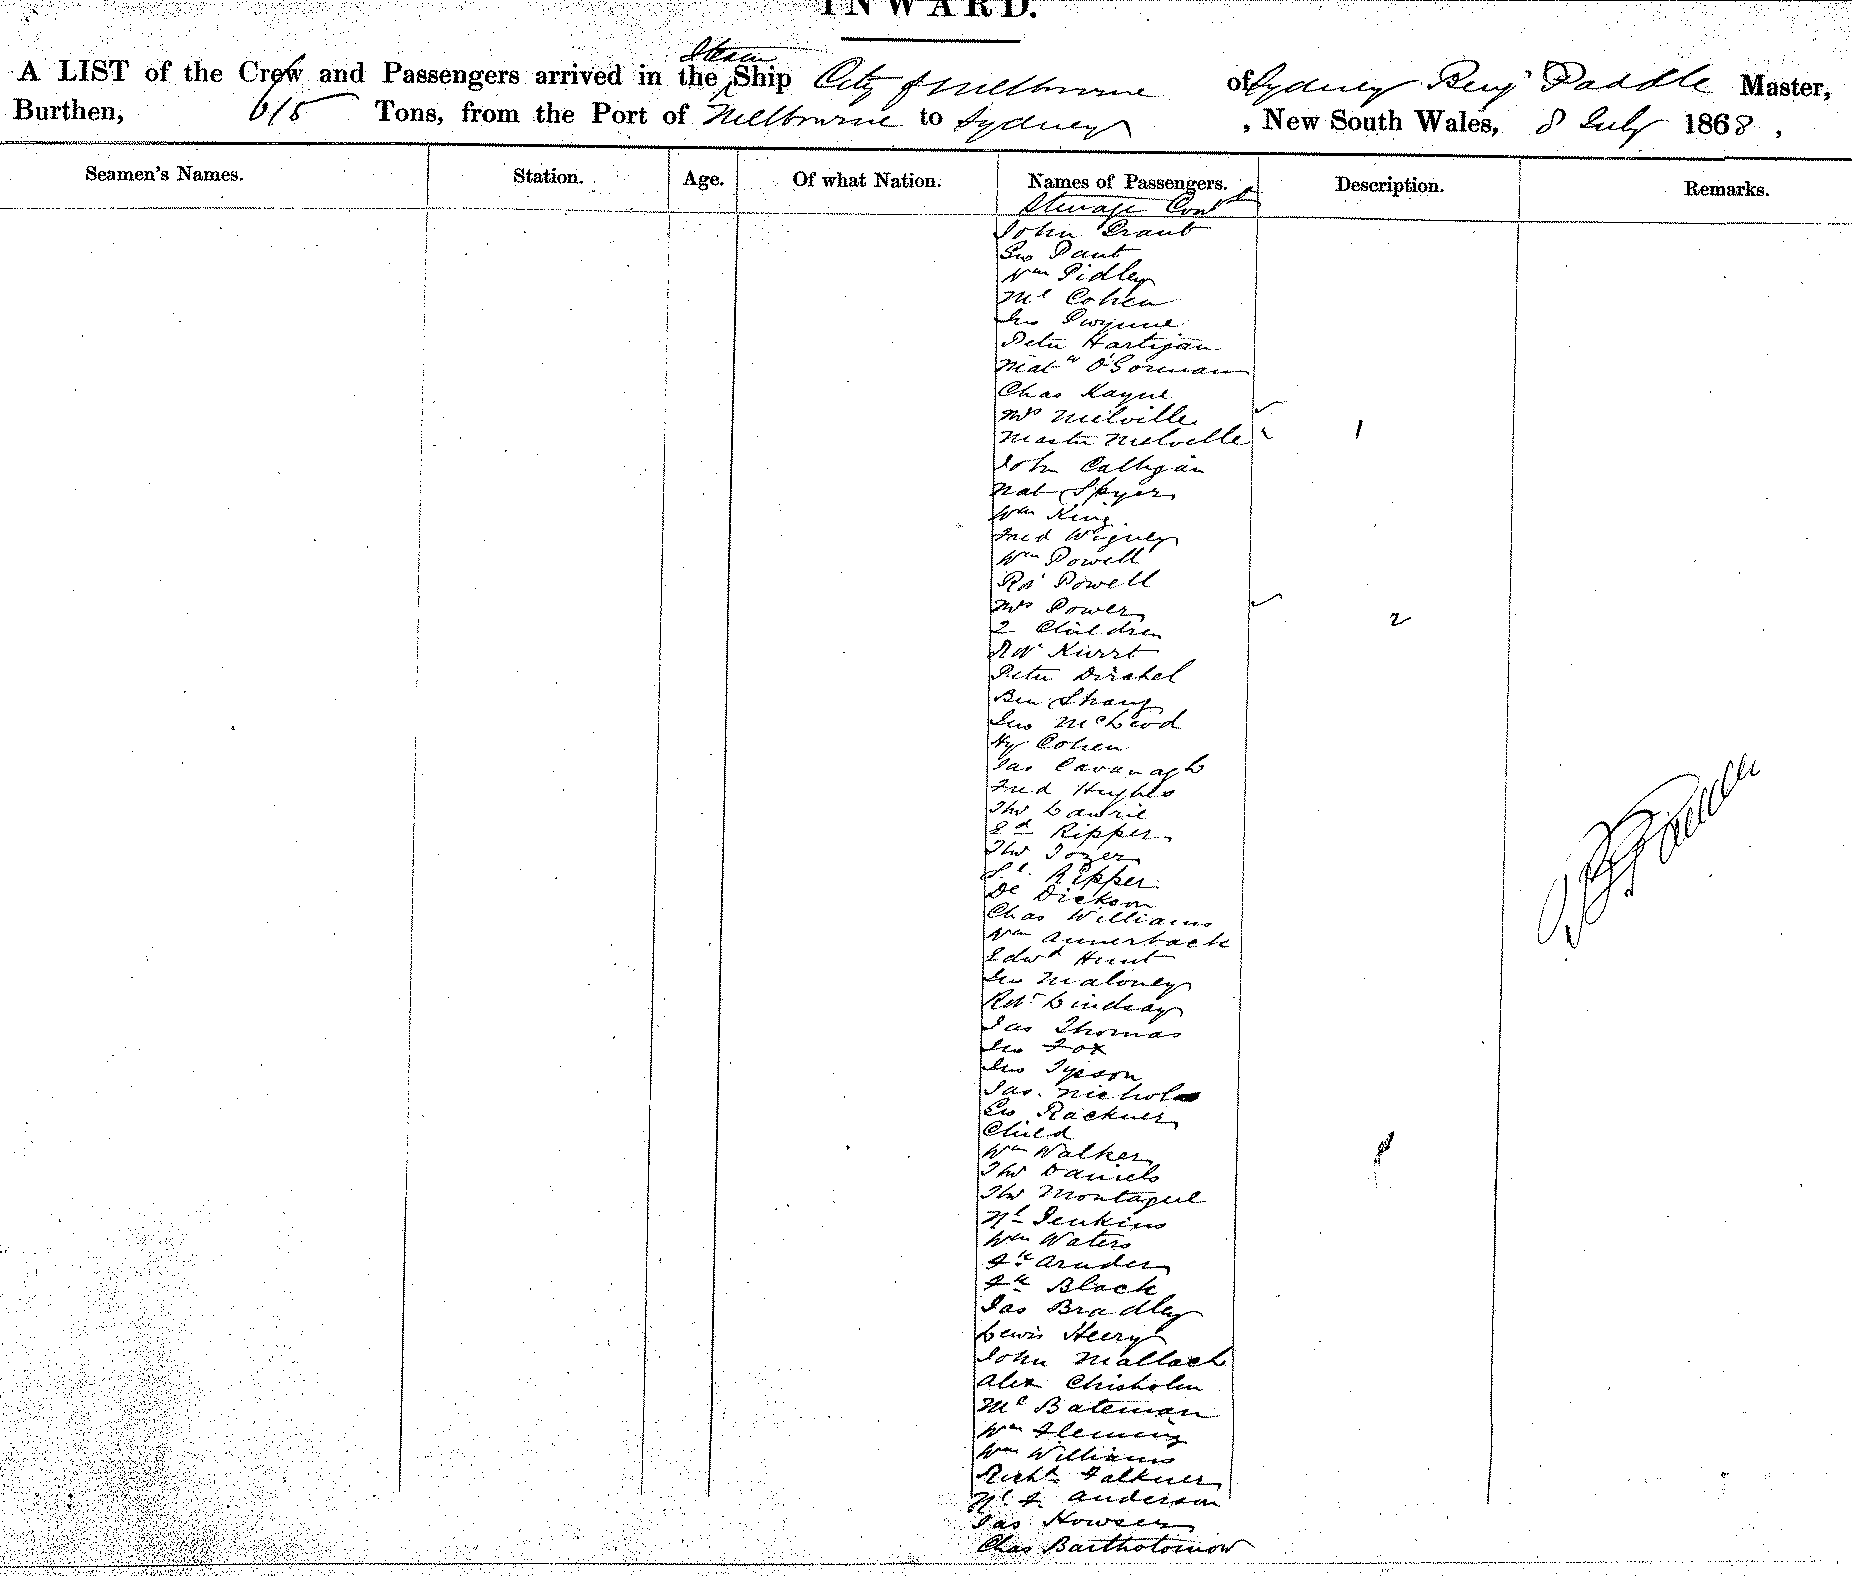 INWARD.
A LIST of the Crew and Passengers arrived in the Steam Ship City of Melbourne of Sydney Benj Paddle Master,
Burthen, 615 Tons, from the Port of Melbourne to Sydney , New South Wales, 8 July 1868 ,
Seamen's Names. Station. Age. Of what Nation. Names of Passengers. Description. Remarks.
Steerage Cont
John Grant
Geo Pant
Wm Pidley
Ml Cohen
Jno Gwynne
Peter Hartigan
Matw O'Gorman
Chas Kayne
Mrs Melville
Master Melville 1
John Calligan
Nat Spyer
Wm King
Fred Wigney
Wm Powell
Rd Powell
Mrs Power
2 Children 2
Robt
Peter
Ben Strang
Jno McLeod
Hy Cohen
Jas Cavanagh
Fred Hughes
Thos Laurie
Ed Ripper
Thos Tozer
Sl Ripper
Dd Dickson
Chas Williams
Wm Annerback
Edwd Hunt
Jno Maloney
Robt Lindsay
Jas Thomas
Jno Fox
Jno Tyeson
Jas. Nicholas
Geo Rackner
Child
Wm Walker 1
Thos Daniels
Thos Montague
Nl Jenkins
Wm Waters
Fk Arnder
Fk Black
Jas Bradley
Lewis Heery
John Mallach
Alex Chisholm
Ml Bateman
Wm Fleming
Wm Williams
Richd Falkner
Nl F. Anderson
Jas Howser
Chas Bartholomow
B Paddle